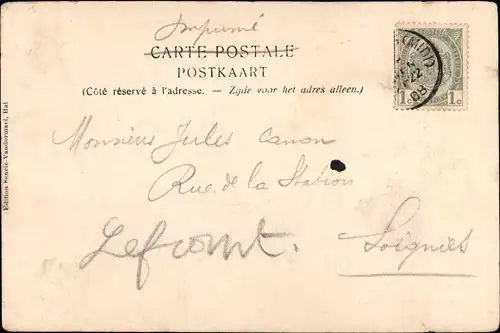 Imprimé
CARTE POSTALE
POSTKAART
(Côté réservé à l'adresse. — Zijde voor het adres alleen.)
1c 1c
08
Edition Sencie-Vandormael, Hal
Monsieur Jules Canon
Rue de la Station
Lefromt.
Soignies